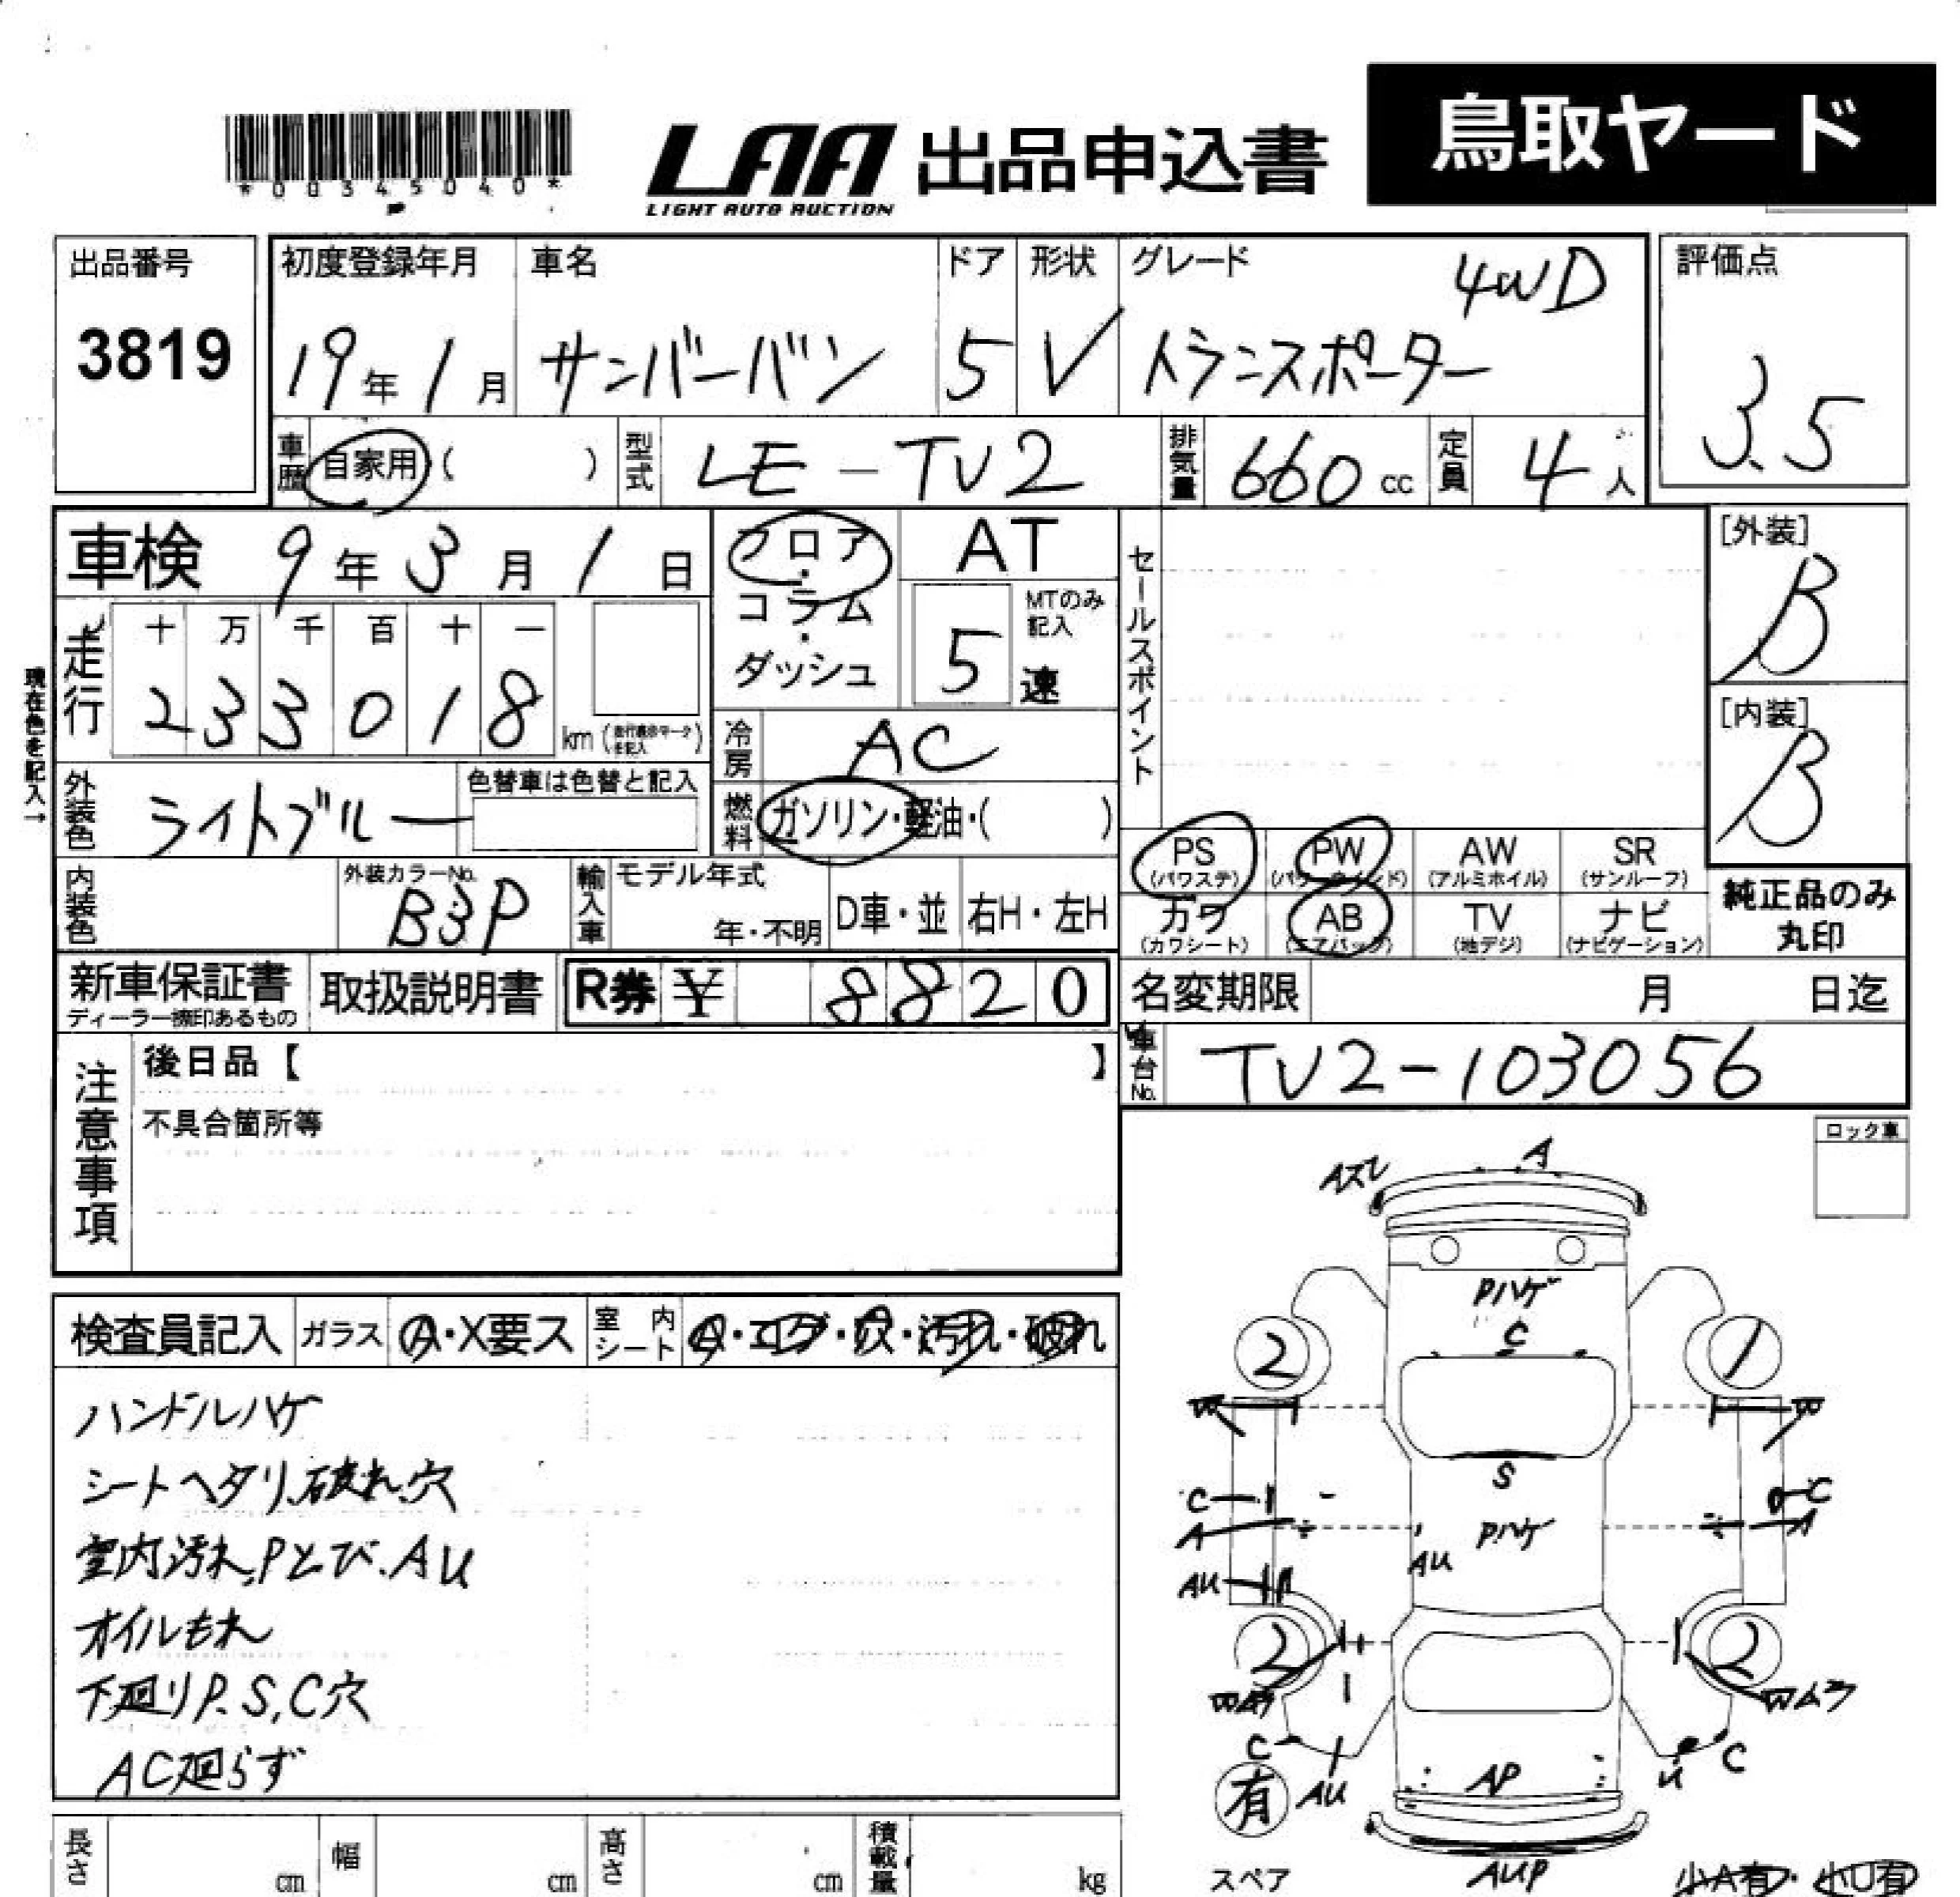 *00345040*
LAA 出品申込書
LIGHT AUTO AUCTION
鳥取ヤード
出品番号
3819
初度登録年月
19年1月
車名
サンバーバン
ドア
5
形状
V
グレード
4WD
トランスポーター
評価点
3.5
車歴
自家用 ( )
型式
LE-TV2
排気量
660 cc
定員
4人
車検 9年3月1日
フロア・コラム・ダッシュ
AT
5速
MTのみ記入
セールスポイント
[外装]
B
[内装]
B
現在色を記入→
走行
十 万 千 百 十 一
2 3 3 0 1 8 km
冷房
AC
外装色
ライトブルー
色替車は色替と記入
燃料
ガソリン・軽油・( )
PS
(パワステ)
PW
(パワーウインド)
AW
(アルミホイル)
SR
(サンルーフ)
内装色
外装カラーNo.
B3P
輸入車
モデル年式
年・不明
D車・並
右H・左H
カワ
(カワシート)
AB
(エアバッグ)
TV
(地デジ)
ナビ
(ナビゲーション)
純正品のみ
丸印
新車保証書
ディーラー捺印あるもの
取扱説明書
R券 ¥ 8820
名変期限 月 日迄
車台No.
TV2-103056
注意事項
後日品【 】
不具合箇所等
ロック車
検査員記入
ガラス
A・X要ス
室内シート
A・コゲ・穴・汚れ・破れ
ハンドルハゲ
シートヘタリ、破れ、穴
室内汚れ、Pとび、AU
オイルもれ
下廻りP、S、C穴
AC廻らず
Aズレ
A
Pハゲ
C
2
1
W
W
S
C
C
A
Pハゲ
A
AU
AU
2
2
C
C
AU
AP
U
有
スペア
AUP
小A有・小U有
長さ
cm
幅
cm
高さ
cm
積載量
kg